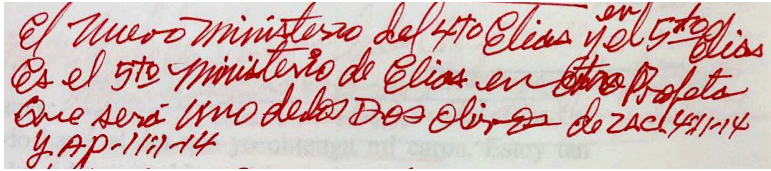 El Nuevo Ministerio del 4to Elias y en el 5to Elias
Es el 5to Ministerio de Elias en otro Profeta
Que será Uno de los Dos Olivos de ZAC. 4:1-14
y AP-11:1-14